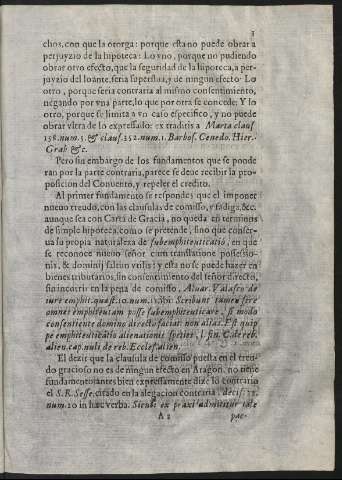 3
chos, con que la otorga: porque esta no puede obrar a
perjuyzio de la hipoteca: Lo vno, porque no pudiendo
obrar otro efecto, que la seguridad de la hipoteca, a per-
juyzio del loante, seria superflua, y de ningun efecto. Lo
otro, porque seria contraria al mismo consentimiento,
negando por vna parte, lo que por otra se concede: Y lo
otro, porque se limita a vn caso especifico, y no puede
obrar vltra de lo expressado: ex traditis a Marta clauf.
158. num. 3. & clauf. 352. num. 1. Barbos. Cenedo. Hier.
Grab &c.
Pero sin embargo de los fundamentos que se ponde
ran por la parte contraria, parece se deue recibir la pro-
posicion del Conuento, y repeler el credito.
Al primer fundamento se responde: que el imponer
nueuo treudo, con las clausulas de comisso, y fadiga, &c.
aunque sea con Carta de Gracia, no queda en terminos
de simple hipoteca, como se pretende, sino que conser-
ua su propia naturaleza de subemphiteuticatió, en que
se reconoce nueuo señor cum translatione possessio-
nis, & dominij saltim vtilis: y esta no se puede hazer en
bienes tributarios, sin consentimiento del señor directo,
sin incurrir en la pena de comisso, Aluar. Valasco de
iure emphit. quæst. 10. num. ibi: Scribunt tamen fere
omnes emphiteutam posse subemphiteuticare, si modo
consentiente domino directo faciat: non alias. Est quip
pe emphiteuticatio alienationis species, l. fin. C. de reb.
alien. cap. nulli de reb. Eccles. alien.
El dezir que la clausula de comisso puesta en el treu-
do gracioso no es de ningun efecto en Aragon, no tiene
fundamento: antes bien expressamente dize lo contrario
el S. R. Sesse, citado en la alegacion contraria, decis. 72.
num. 20 in hæc verba. Sicuti ex praxi admititur tale
A 2 pac-